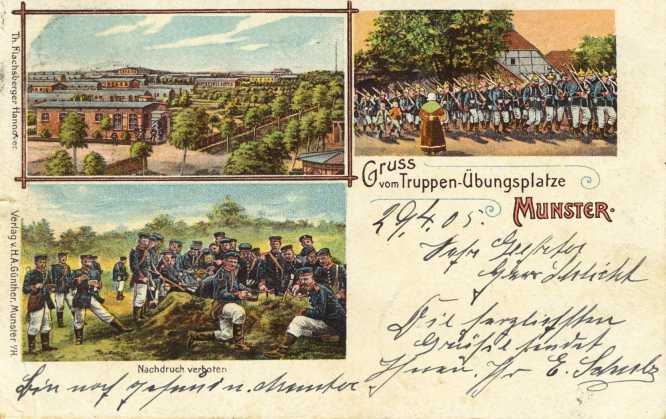 Th. Flachsberger Hannover.
Gruss
vom Truppen-Übungsplatze
MUNSTER.
29.4.05.
Sehr Geehrter
Herr
Die herzlichsten
Grüße sendet
Ihnen, Ihr E. Schulz
Verlag v. H.A. Günther, Munster i/H.
Nachdruch verboten
Bin noch gesund u. Munter